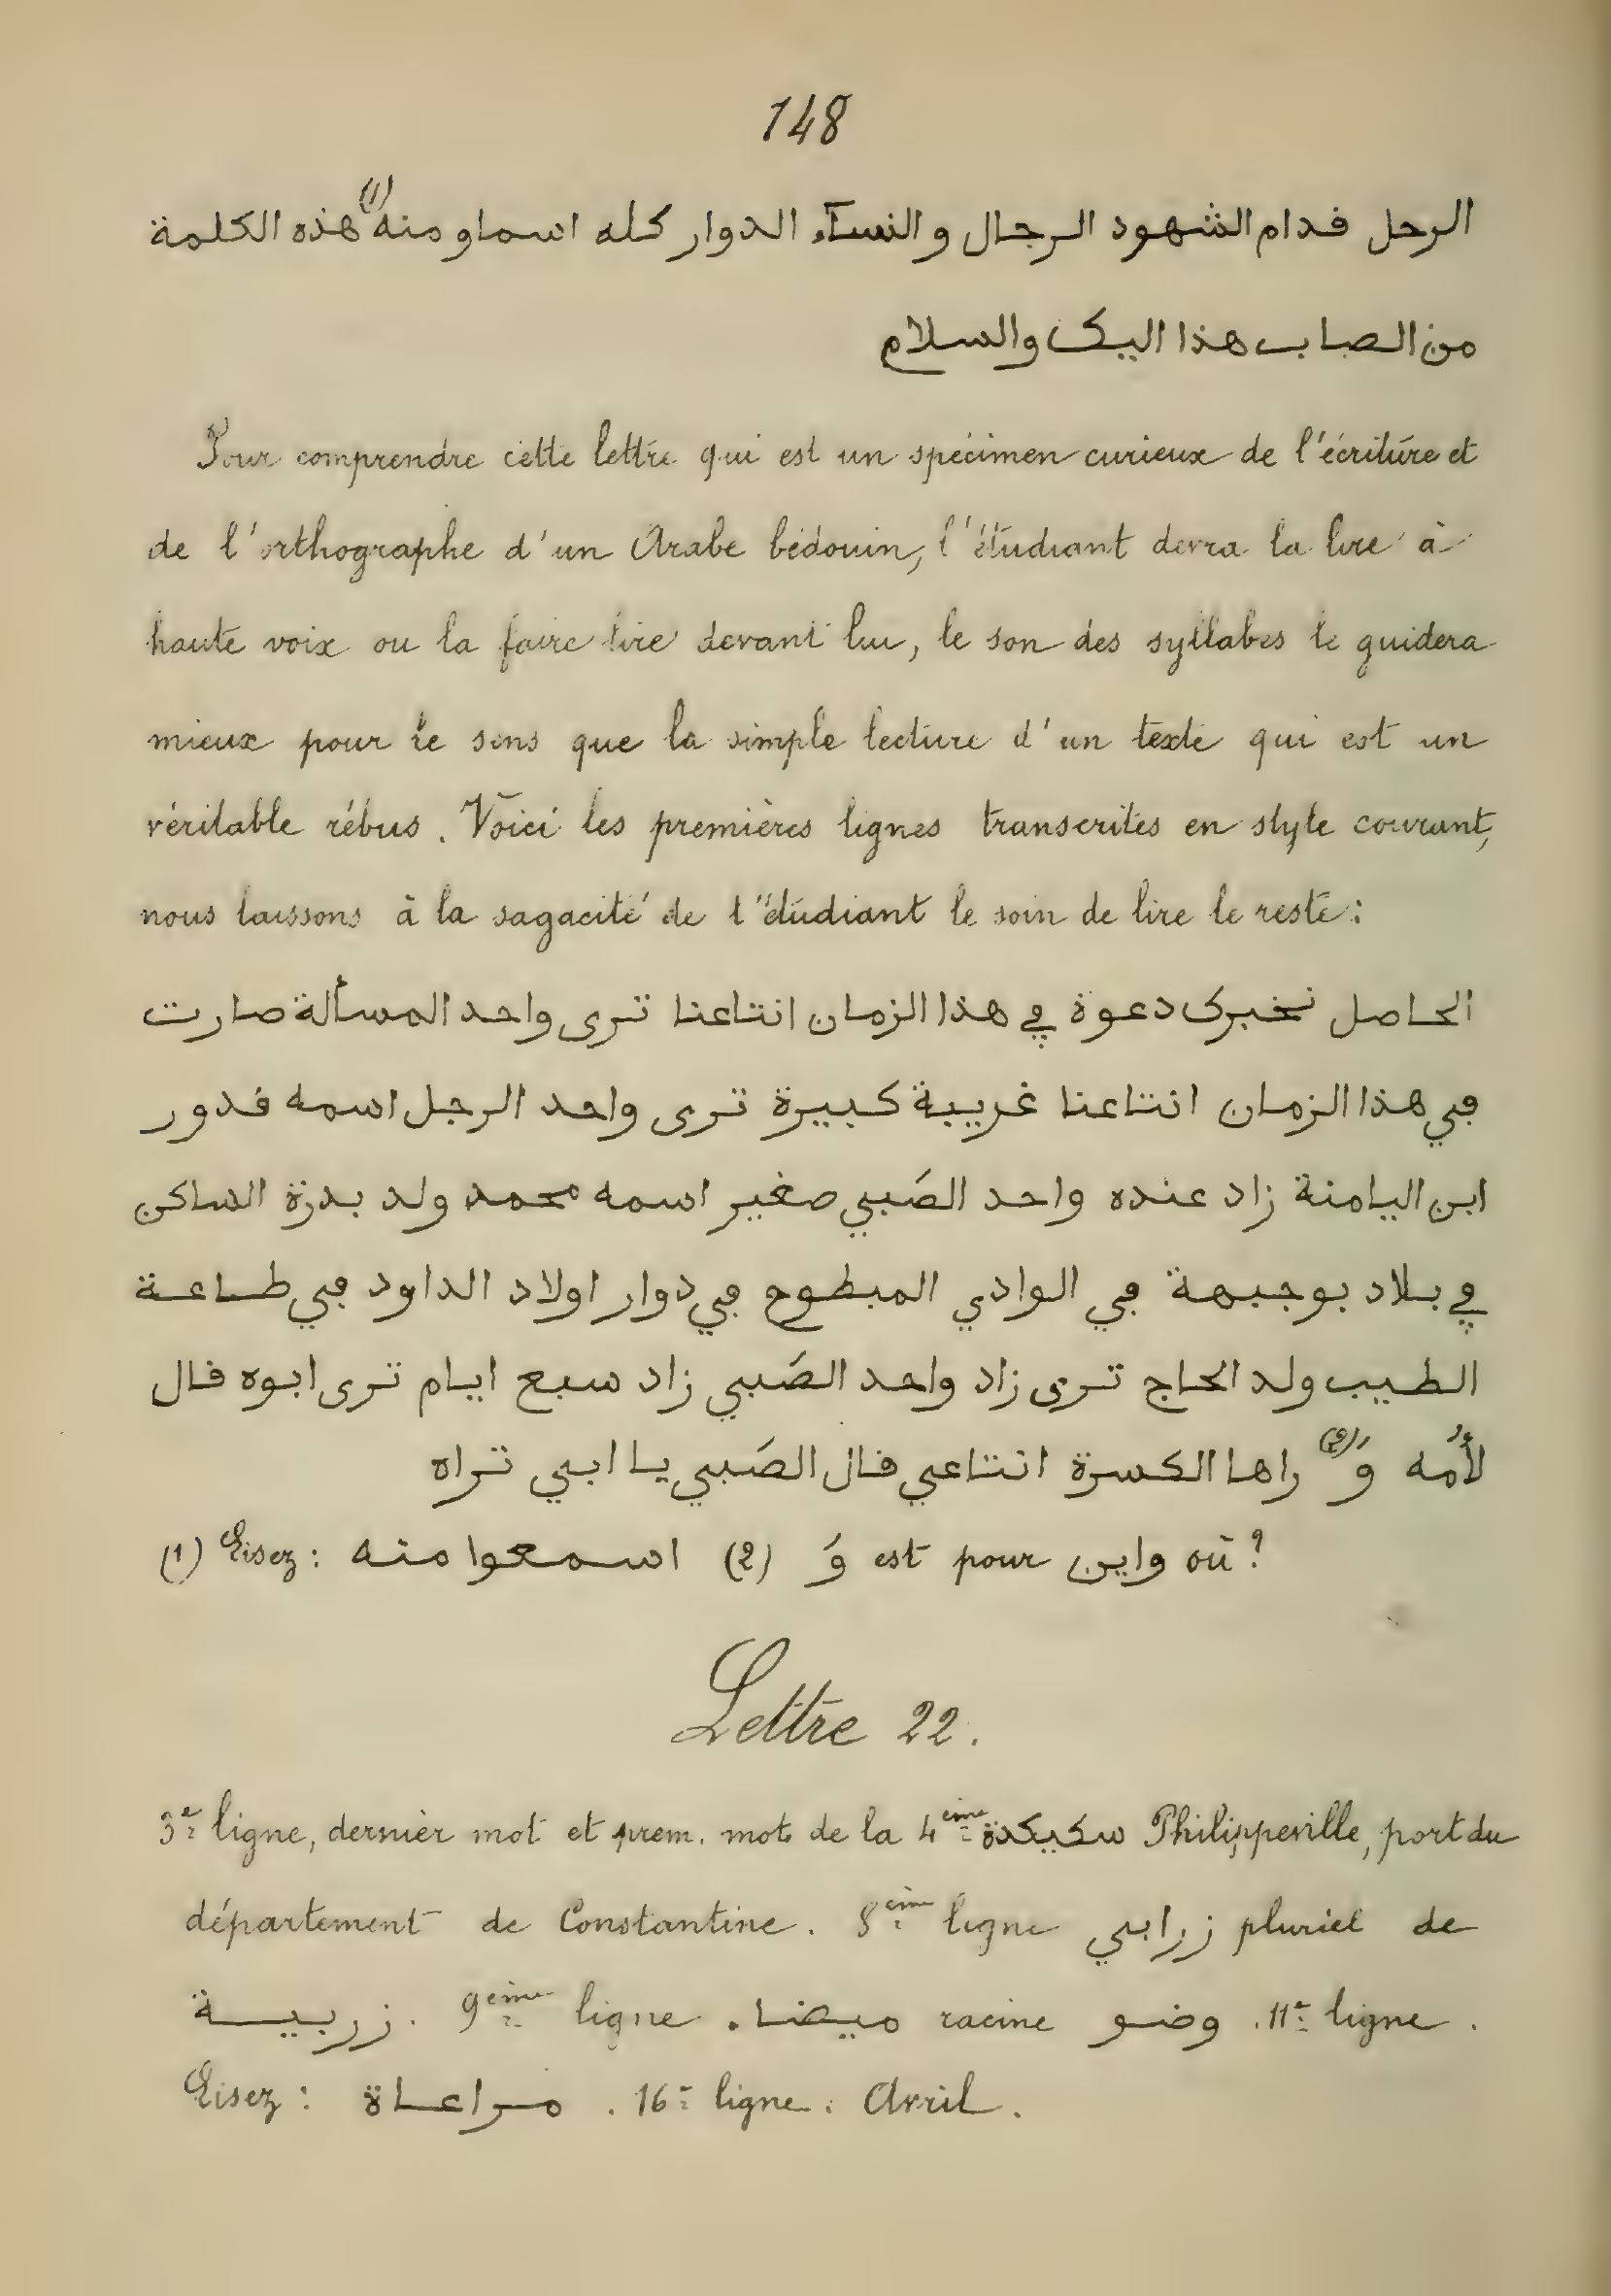 148
الرجل ڢدام الشهود الرجال والنسآء الدوار كله اسماو منه (1) هذه الكلمة
من الصاب هذا اليك والسلام
Pour comprendre cette lettre qui est un spécimen curieux de l'écriture et
de l'orthographe d'un Arabe bédouin, l'étudiant devra la lire à
haute voix ou la faire lire devant lui, le son des syllabes le guidera
mieux pour le sens que la simple lecture d'un texte qui est un
véritable rébus. Voici les premières lignes transcrites en style courant,
nous laissons à la sagacité de l'étudiant le soin de lire le reste:
الحاصل نخبرك دعوة ڢي هذا الزمان انتاعنا ترى واحد المسألة صارت
ڢي هذا الزمان انتاعنا غريبة كبيرة ترى واحد الرجل اسمه ڢدور
ابن اليامنة زاد عنده واحد الصَبي صغير اسمه محمد ولد بدرة الساكن
ڢي بلاد بوجبهة ڢي الوادي المبطوح ڢي دوار اولاد الداود ڢي طاعة
الطيب ولد الحاج ترى زاد واحد الصَبي زاد سبع ايام ترى ابوه ڢال
لأُمّه وَ (2) راها الكسرة انتاعي ڢال الصَبي يا ابي تراه
(1) Lisez: اسمعوا منه (2) وَ est pour واين où?
Lettre 22.
3e ligne, dernier mot et prem. mot de la 4ème سكيكدة Philippeville, port du
département de Constantine. 8ème ligne زرابي pluriel de
زربية. 9ème ligne. ميضا. racine وضو. 11e ligne.
Lisez: مراعاة. 16e ligne. Avril.